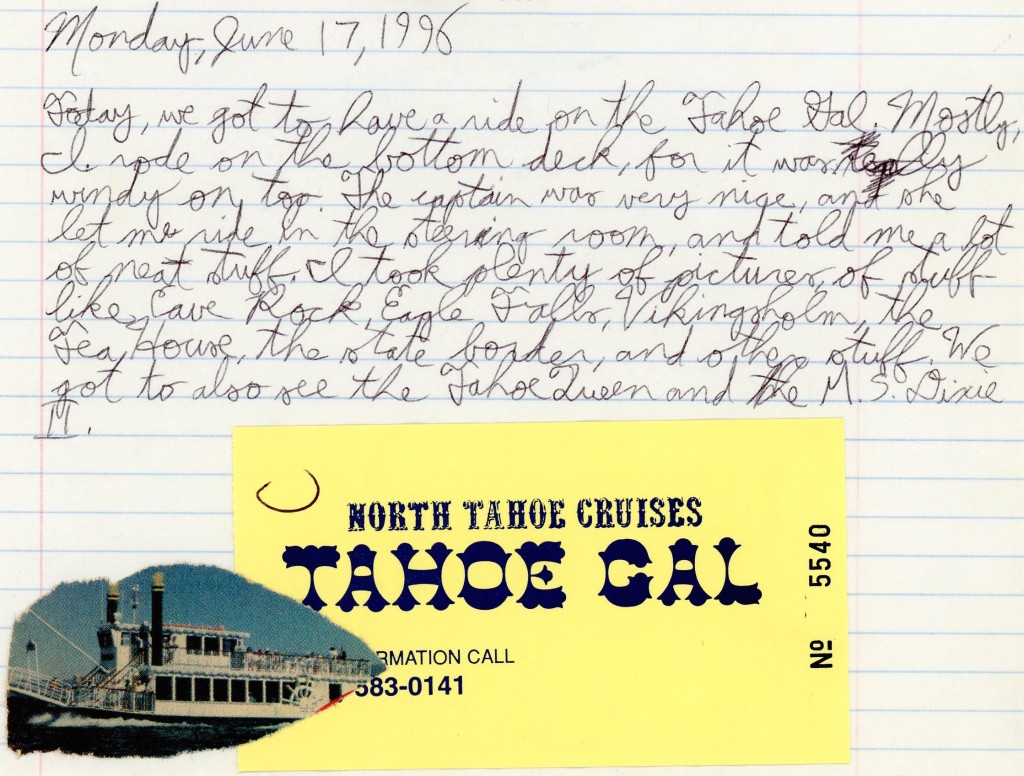 Monday, June 17, 1996
Today, we got to have a ride on the Tahoe Gal. Mostly,
I rode on the bottom deck, for it was really
windy on top. The captain was very nice, and she
let me ride in the steering room, and told me a lot
of neat stuff. I took plenty of pictures, of stuff
like Cave Rock, Eagle Falls, Vikingsholm, the
Tea House, the state border, and other stuff. We
got to also see the Tahoe Queen and the M.S. Dixie
II.
NORTH TAHOE CRUISES
TAHOE GAL
RMATION CALL
583-0141
Nº 5540